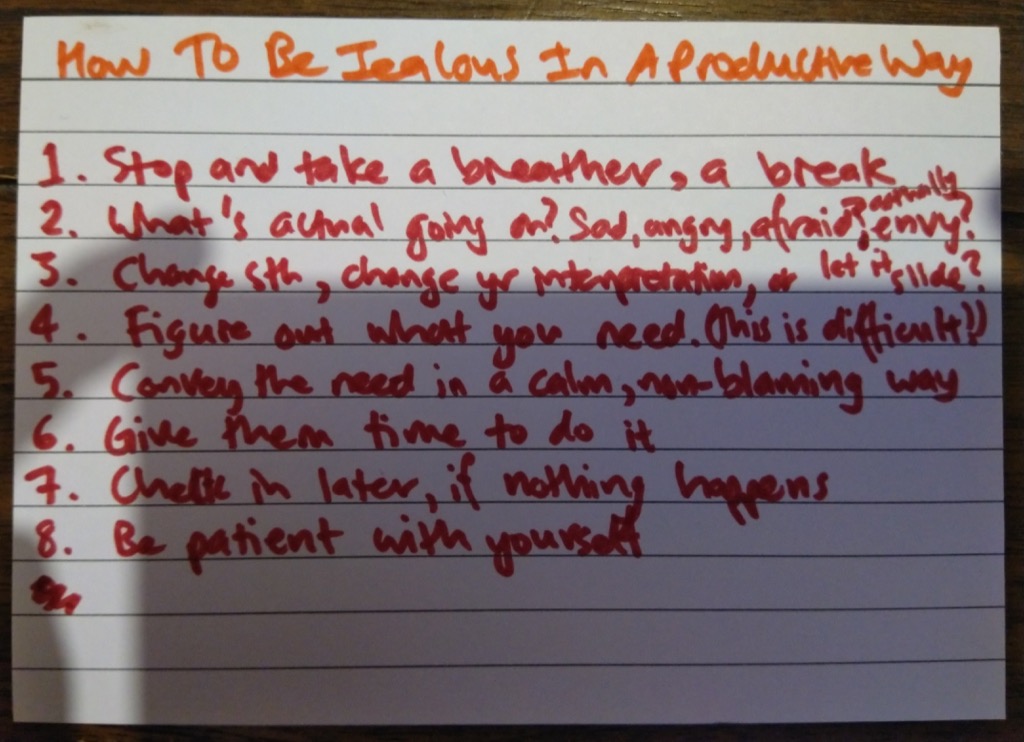 How To Be Jealous In A Productive Way
1. Stop and take a breather, a break
2. What's actual going on? Sad, angry, afraid?, actually envy?
3. Change sth, change yr interpretation, or let it slide?
4. Figure out what you need. (This is difficult!)
5. Convey the need in a calm, non-blaming way
6. Give them time to do it
7. Check in later, if nothing happens
8. Be patient with yourself